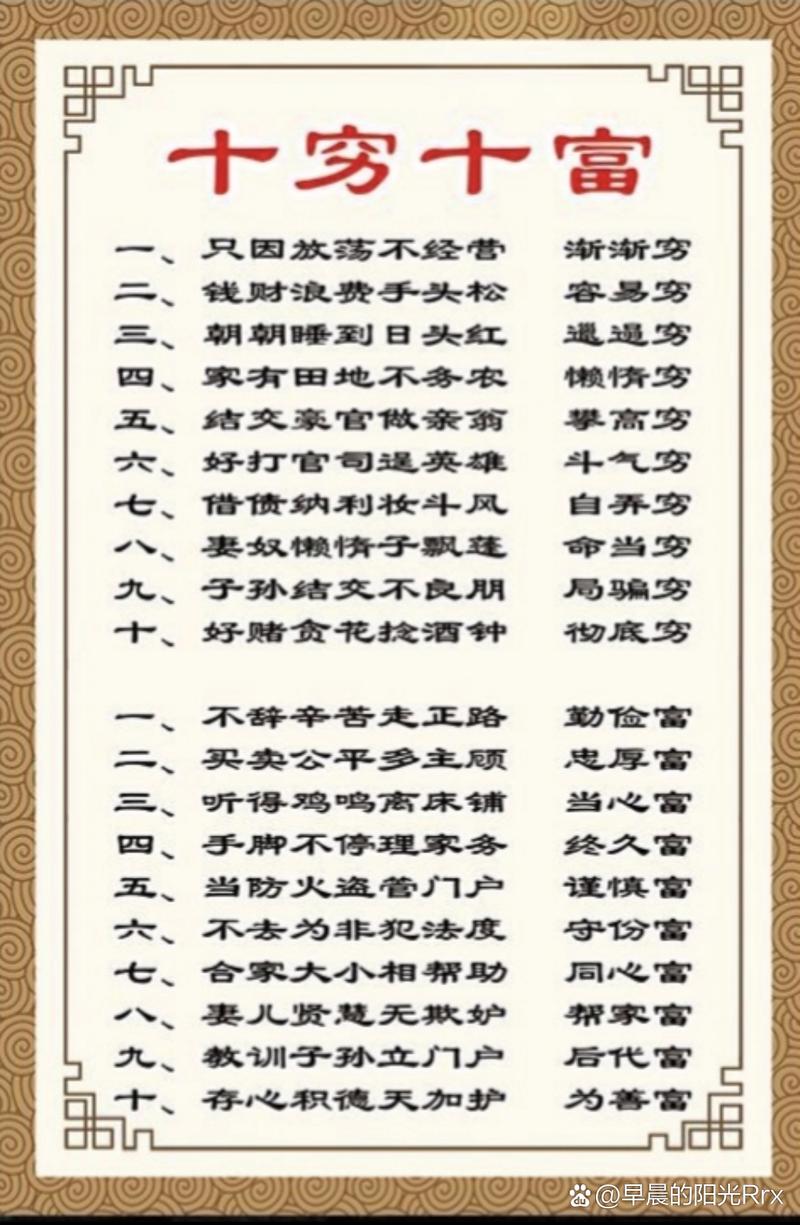 十穷十富
一、只因放荡不经营 渐渐穷
二、钱财浪费手头松 容易穷
三、朝朝睡到日头红 邋遢穷
四、家有田地不务农 懒惰穷
五、结交豪官做亲翁 攀高穷
六、好打官司逞英雄 斗气穷
七、借债纳利妆斗风 自弄穷
八、妻奴懒惰子飘蓬 命当穷
九、子孙结交不良朋 局骗穷
十、好赌贪花捻酒钟 彻底穷
一、不辞辛苦走正路 勤俭富
二、买卖公平多主顾 忠厚富
三、听得鸡鸣离床铺 当心富
四、手脚不停理家务 终久富
五、当防火盗管门户 谨慎富
六、不去为非犯法度 守份富
七、合家大小相帮助 同心富
八、妻儿贤慧无欺妒 帮家富
九、教训子孙立门户 后代富
十、存心积德天加护 为善富
du @早晨的阳光Rrx